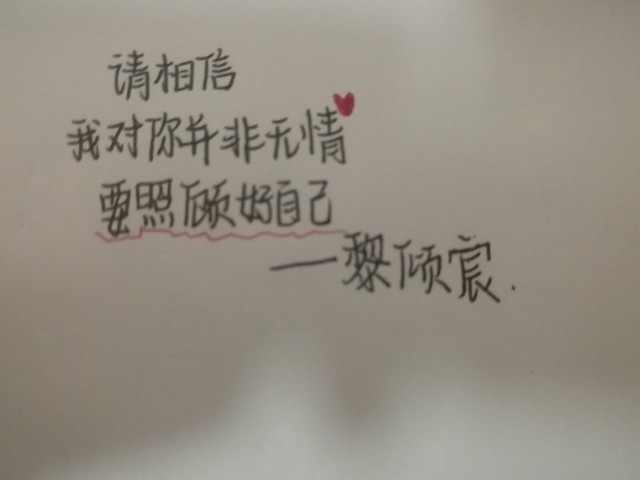 请相信
我对你并非无情
要照顾好自己
——黎倾宸.